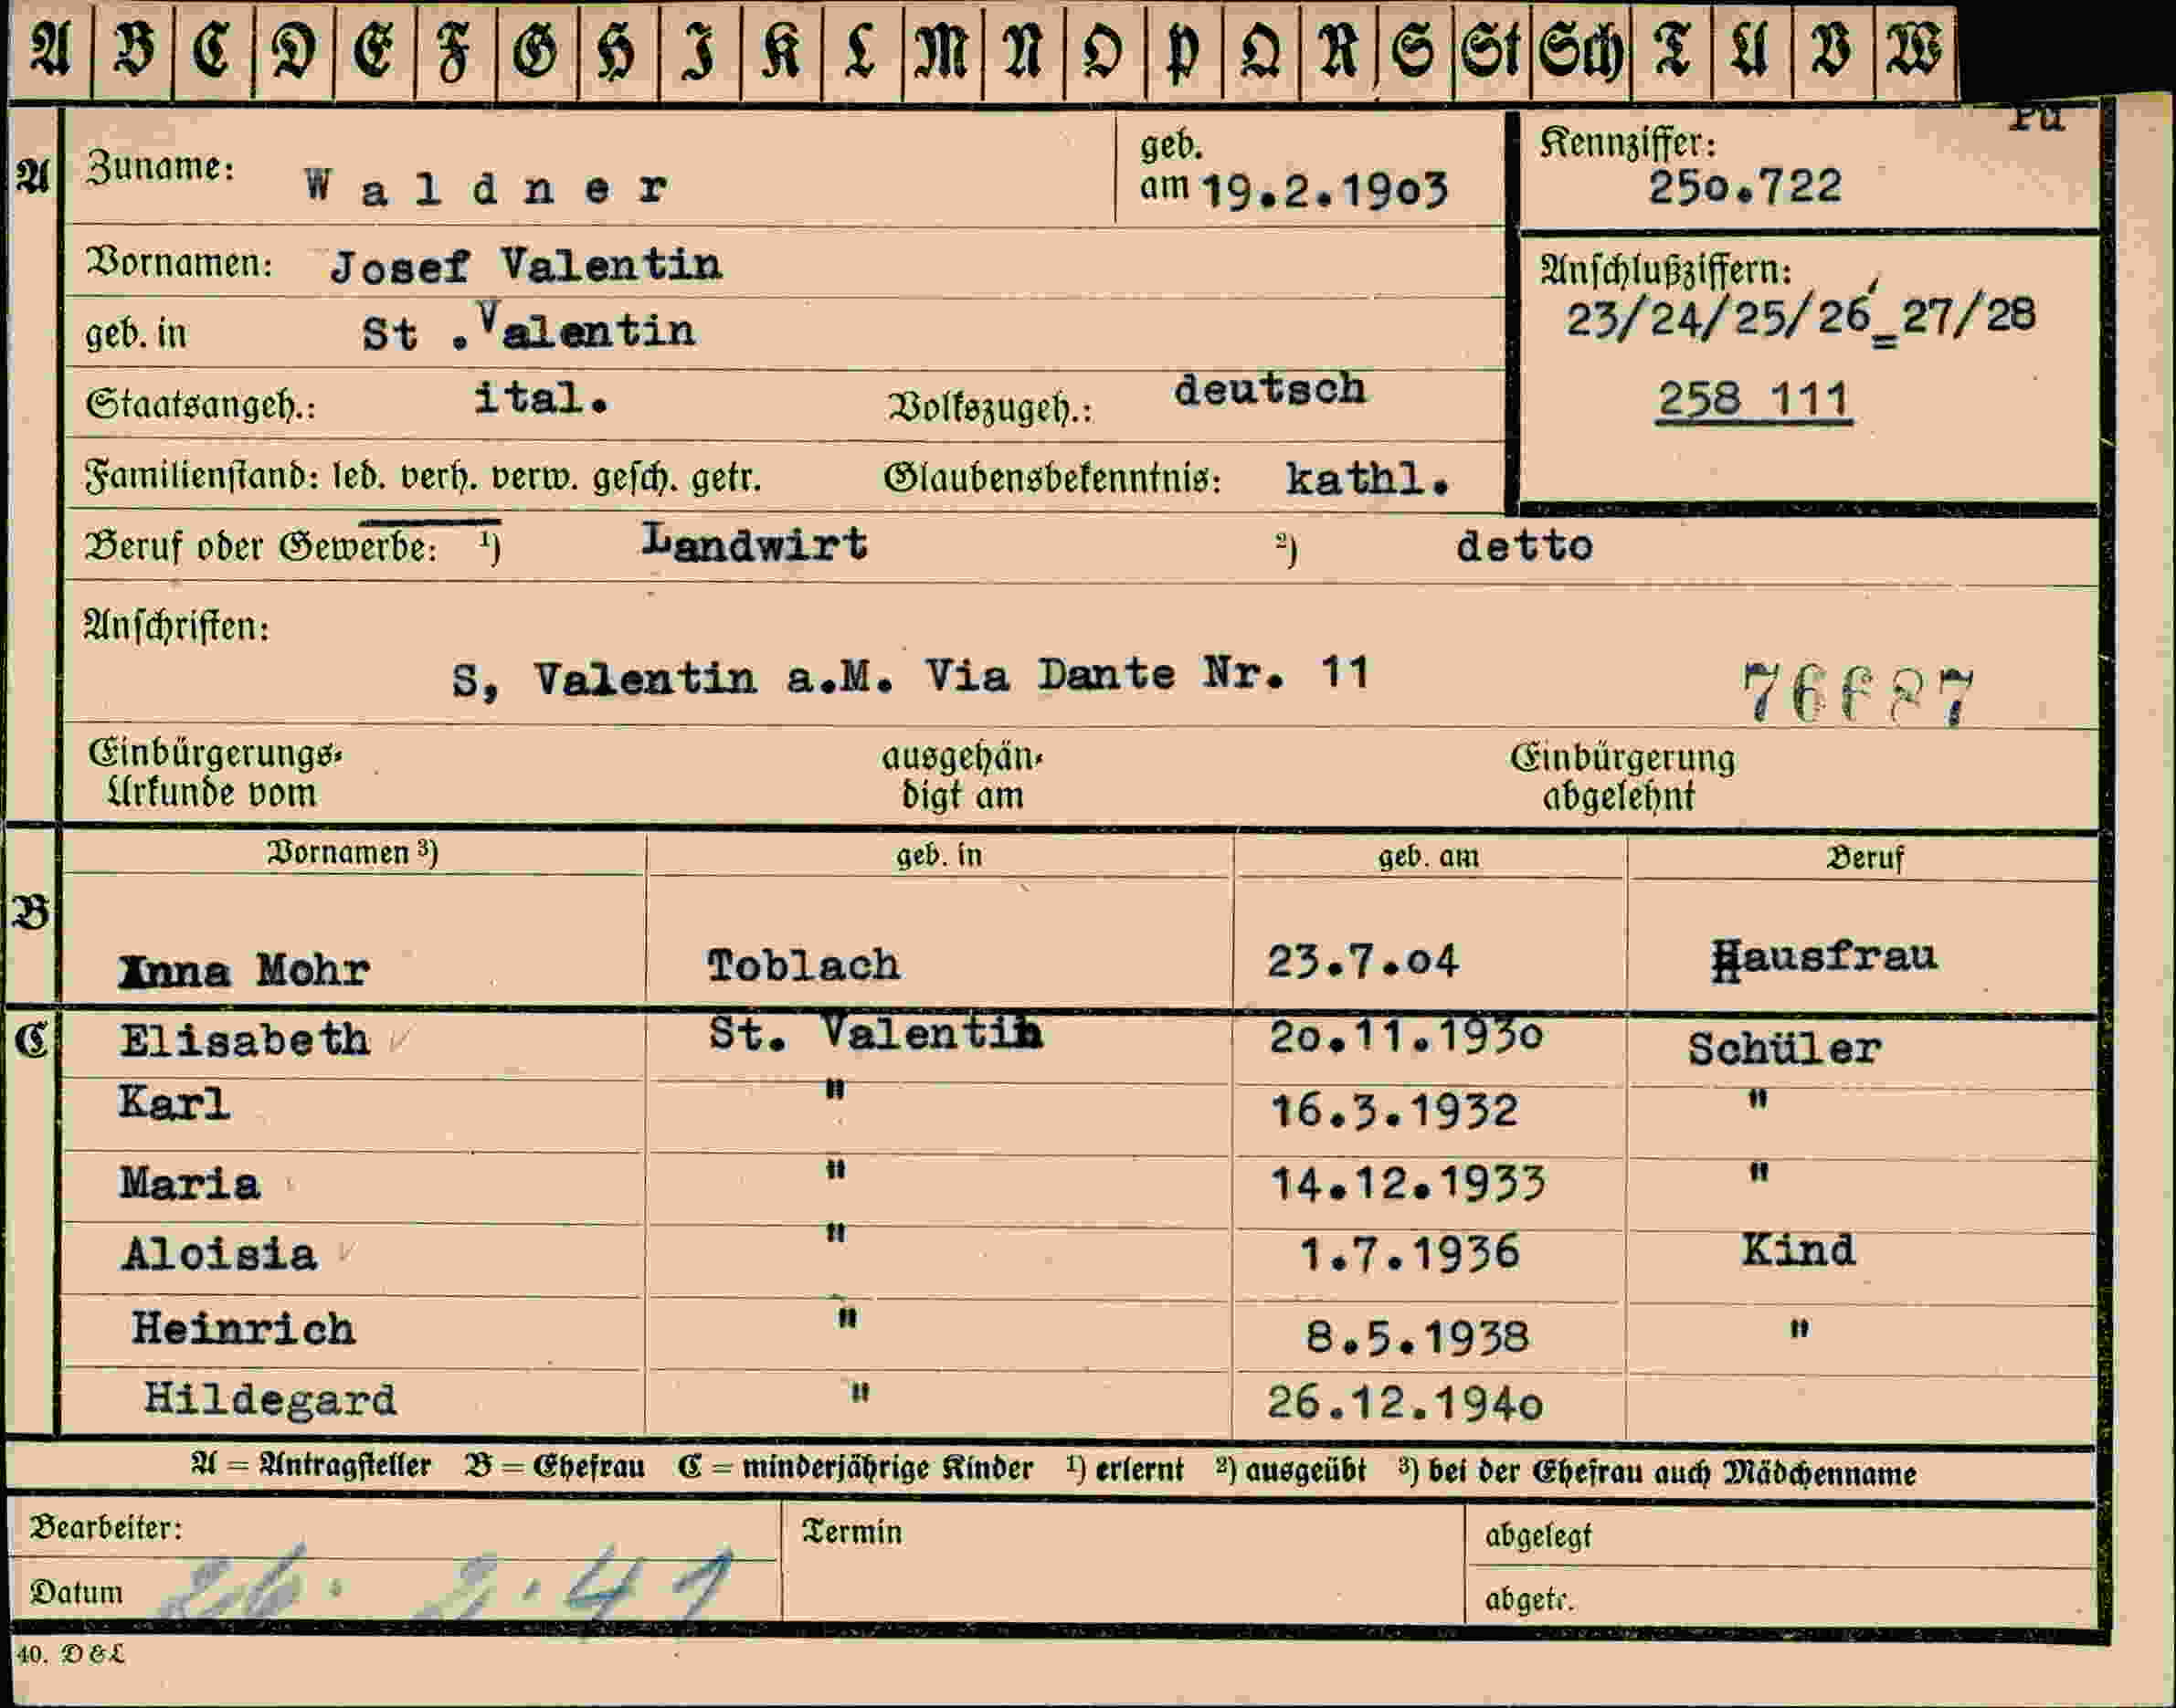 A B C D E F G H I K L M N O P Q R S St Sch T U V W
Pu
A
Zuname: Waldner
geb. am 19.2.1903
Kennziffer:
250.722
Vornamen: Josef Valentin
Anschlußziffern:
23/24/25/26=27/28
258 111
geb. in St .Valentin
Staatsangeh.: ital. Volkszugeh.: deutsch
Familienstand: led. verh. verw. gesch. getr. Glaubensbekenntnis: kathl.
Beruf oder Gewerbe: 1) Landwirt 2) detto
Anschriften:
S, Valentin a.M. Via Dante Nr. 11
Einbürgerungs-Urkunde vom
ausgehändigt am
Einbürgerung abgelehnt
Vornamen 3) geb. in geb. am Beruf
B
Anna Mohr Toblach 23.7.04 Hausfrau
C
Elisabeth St. Valentin 20.11.1930 Schüler
Karl " 16.3.1932 "
Maria " 14.12.1933 "
Aloisia " 1.7.1936 Kind
Heinrich " 8.5.1938 "
Hildegard " 26.12.1940
A = Antragsteller B = Ehefrau C = minderjährige Kinder 1) erlernt 2) ausgeübt 3) bei der Ehefrau auch Mädchenname
Bearbeiter: Termin abgelegt
Datum 26. 2.41 abgetr.
40. D&L